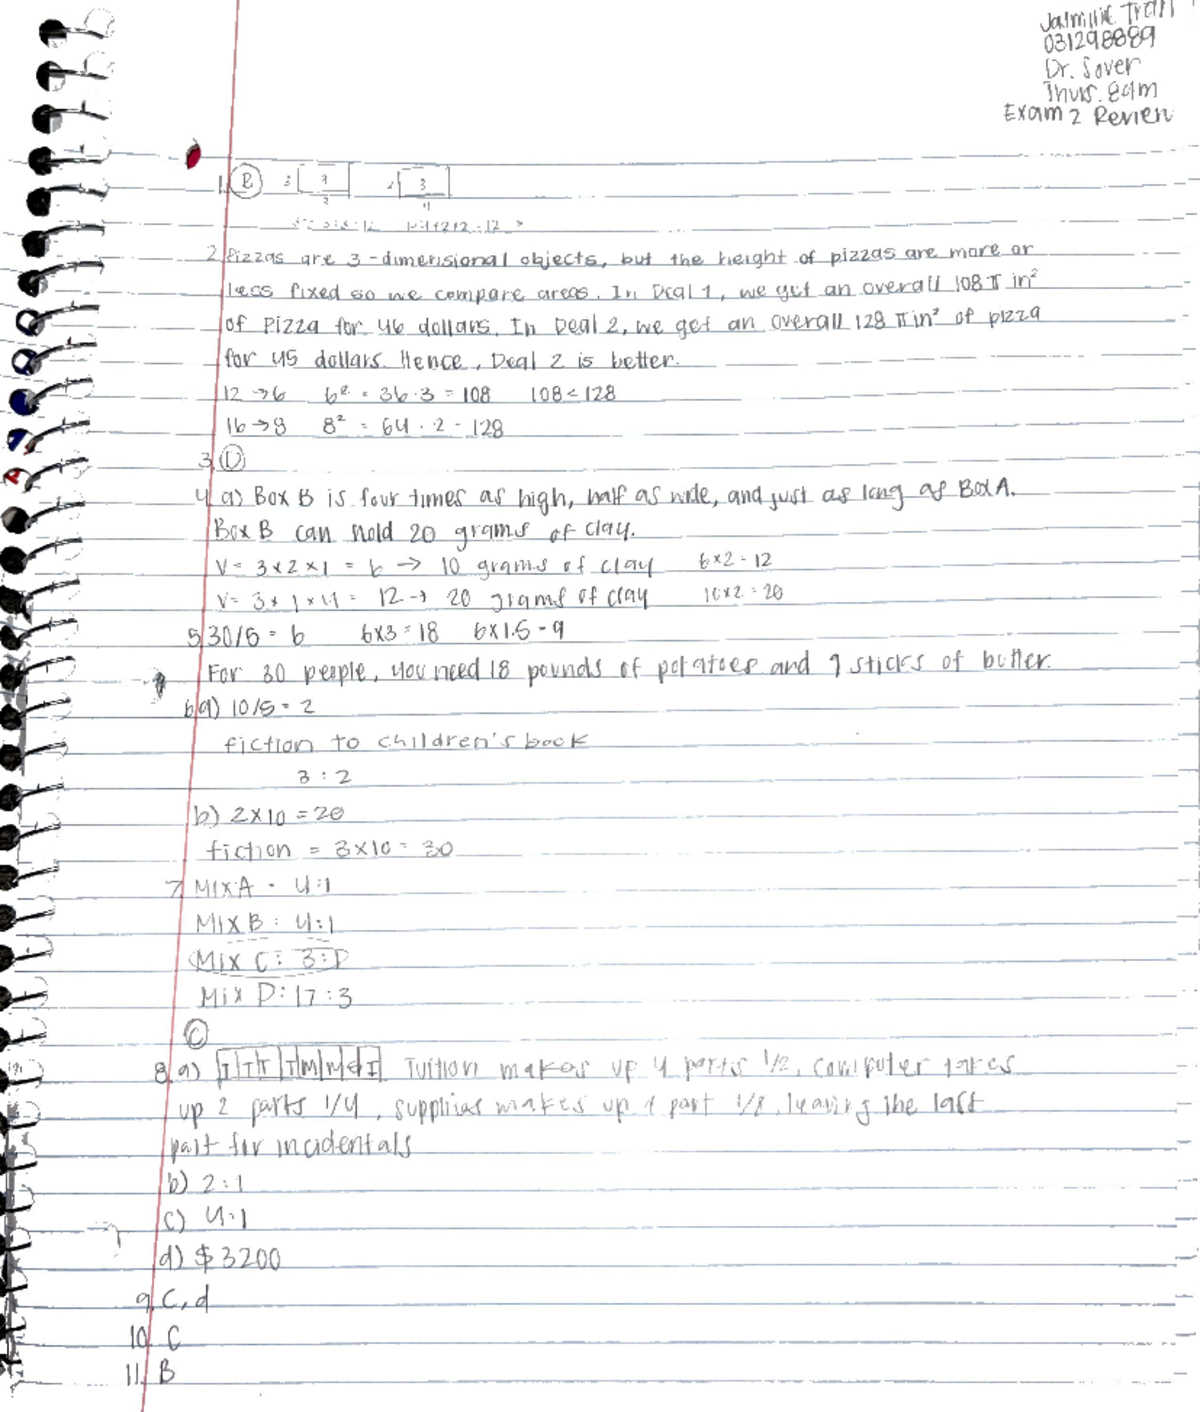 031298889
Dr. Sover
Thurs. 8am
Exam 2 Review
1. B 3 9 2 3
3 4
3+3+3+3=12 4+4+2+2=12
2. Pizzas are 3-dimensional objects, but the height of pizzas are more or
less fixed so we compare areas. In Deal 1, we get an overall 108 π in²
of pizza for 46 dollars. In Deal 2, we get an overall 128 π in² of pizza
for 45 dollars. Hence, Deal 2 is better.
12 → 6 6² = 36 · 3 = 108 108 < 128
16 → 8 8² = 64 · 2 = 128
3. D
4. a) Box B is four times as high, half as wide, and just as long as Box A.
Box B can hold 20 grams of clay.
V = 3 x 2 x 1 = 6 → 10 grams of clay 6 x 2 = 12
V = 3 x 1 x 4 = 12 → 20 grams of clay 10 x 2 = 20
5. 30/5 = 6 6x3 = 18 6x1.5 = 9
For 30 people, you need 18 pounds of potatoes and 9 sticks of butter.
6. a) 10/5 = 2
fiction to children's book
3 : 2
b) 2 x 10 = 20
fiction = 3 x 10 = 30
7. Mix A = 4:1
Mix B : 4:1
Mix C : 3:1
Mix D : 17 : 3
C
8. a) T T T T M M S I Tuition makes up 4 parts 1/2, computer takes
up 2 parts 1/4, supplies makes up 1 part 1/8, leaving the last
part for incidentals
b) 2:1
c) 4:1
d) $3200
9. C, d
10. C
11. B